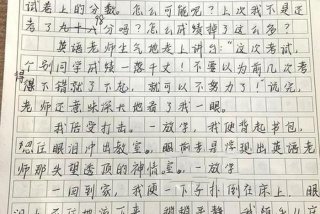 试卷上的分数。怎么可能呢？上次我不是还
考了九十八分吗？怎么成绩掉了这么多？
英语老师生气地走上讲台：“这次考试，
个别同学成绩一落千丈！不要以为前几次考
得不错就了不起，就可以不努力了！”说完，
老师还意味深长地看了我一眼。
我倍受打击。一放学，我便背起书包，
忍住眼泪冲出教室。眼前老是浮现出英语老
师那失望透顶的神情。一放学
一回到家，我便一下子扑倒在床上，眼